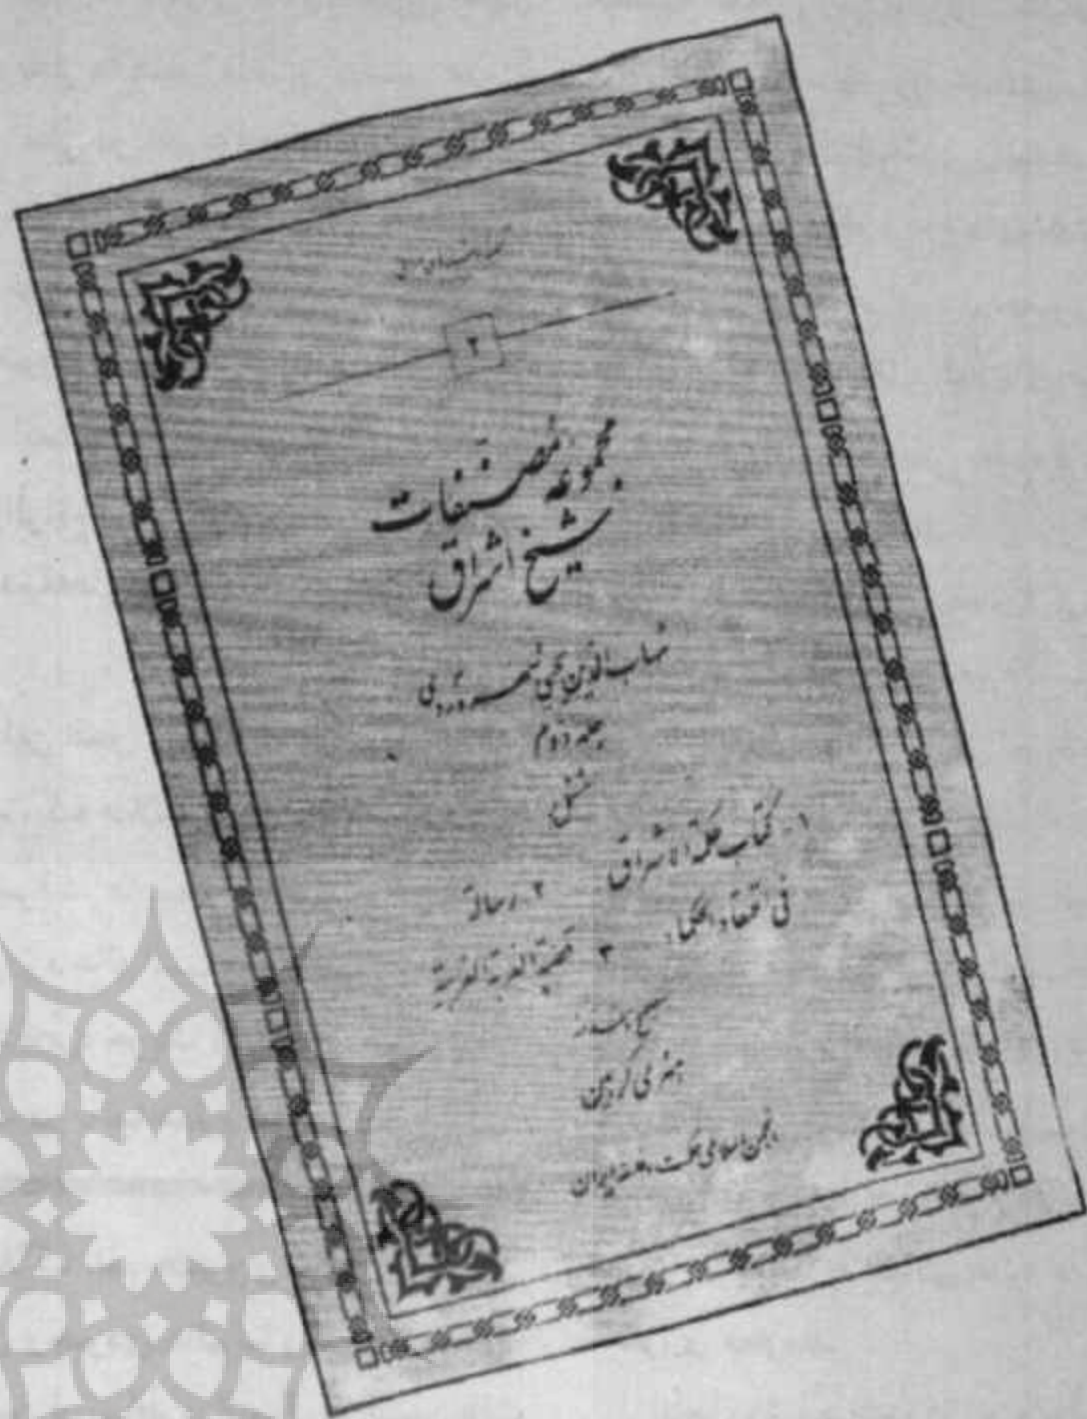 ۲
مجموعه مصنفات
شیخ اشراق
شهاب‌الدین یحیی سهروردی
جلد دوم
مشتمل بر
۱- کتاب حکمة الاشراق ۲- رسالة
فی اعتقاد الحکماء ۳- قصة الغربة الغربیة
هنری کربین
انجمن اسلامی حکمت و فلسفه ایران